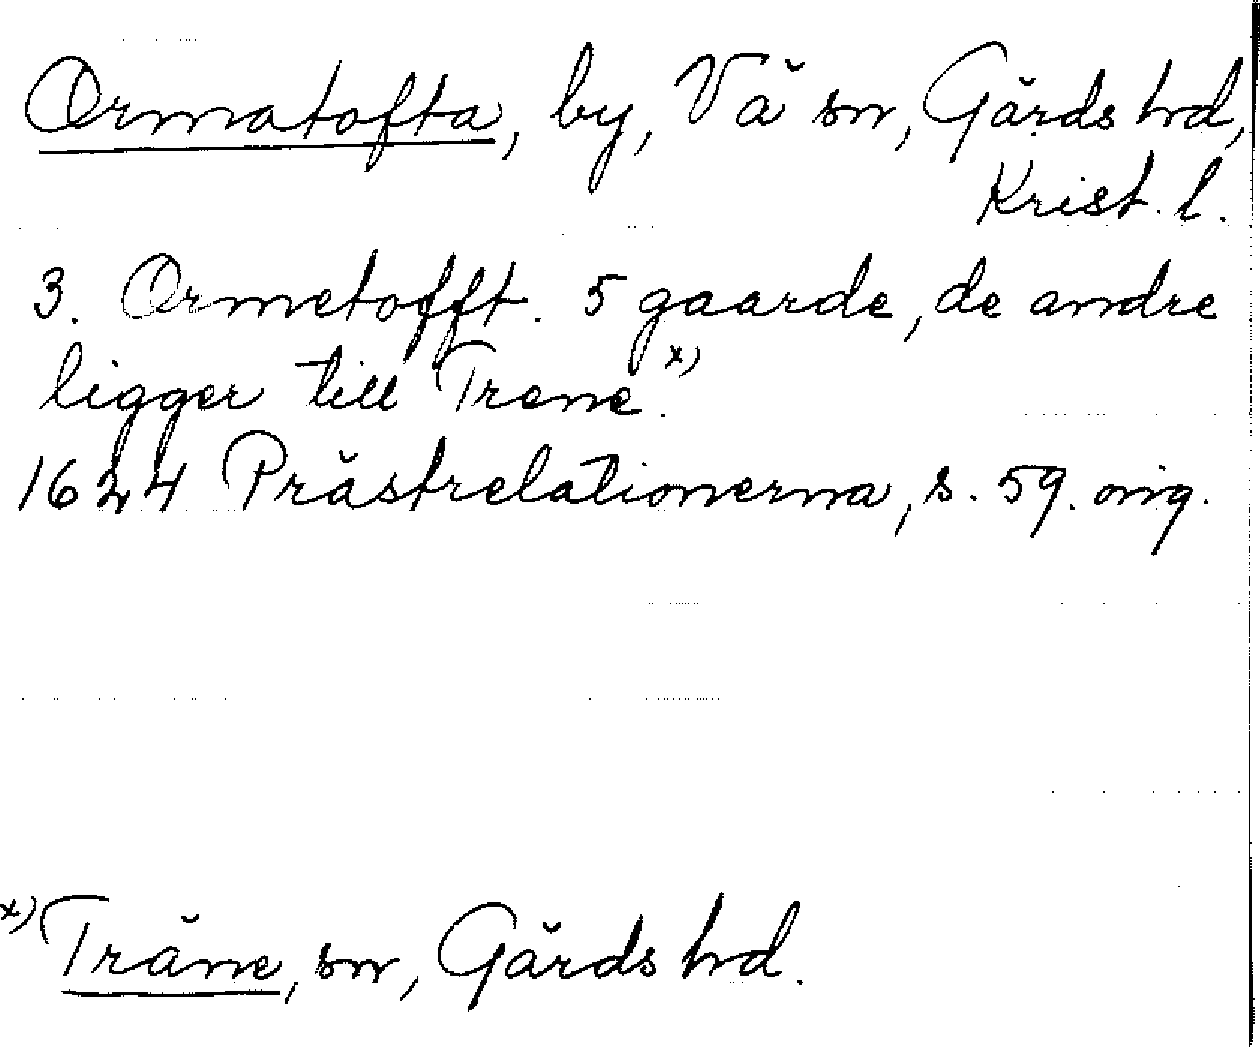 Ormatofta, by, Vä sn, Gärds hd,
Krist. l.
3. Ormetofft. 5 gaarde, de andre
ligger till Trene.x)
1624 Prästrelationerna, s. 59. orig.
x) Träne, sn, Gärds hd.